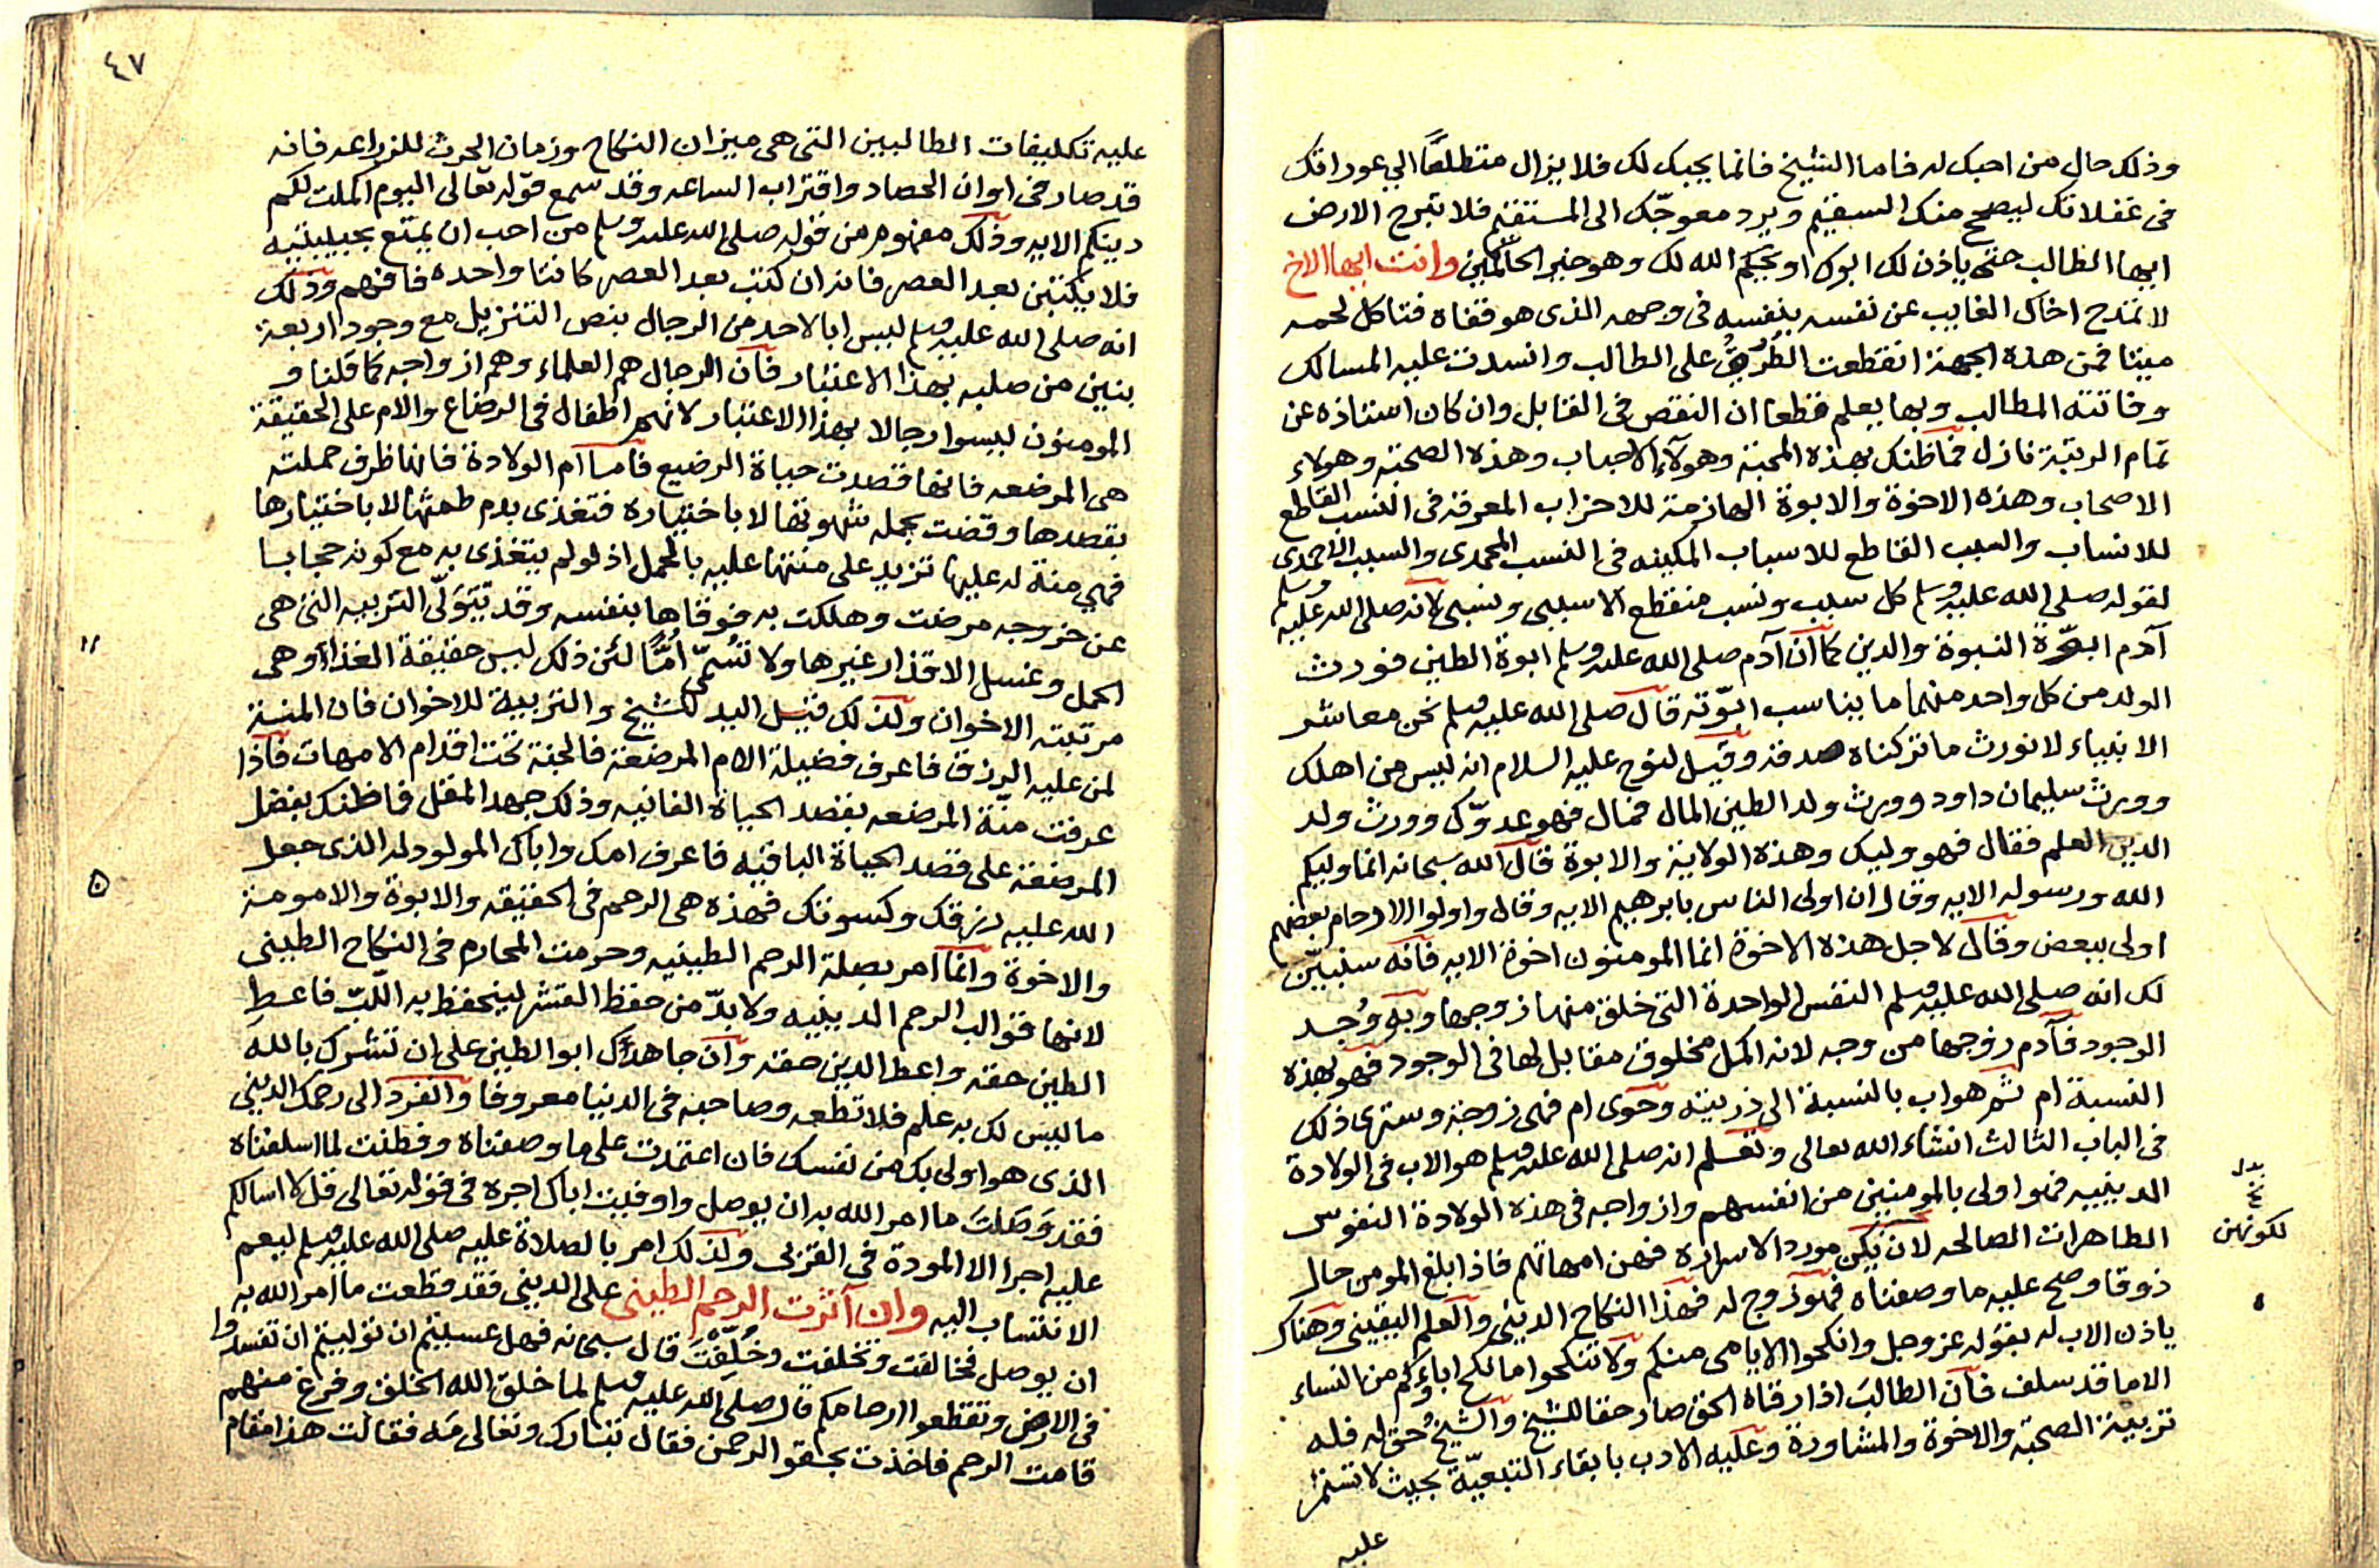 وذلك حال من احبك له فاما الشيخ فانما يحبك لك فلا يزال متطلعًا الى عوراتك
فى غفلاتك ليصح منك السقيم ويرد معوجّك الى المستقيم فلا تبرح الارض
ايها الطالب حتى ياذن لك ابوك او يحكم الله لك وهو خير الحاكمين وانت ايها الاخ
لا تمدح اخاك الغايب عن نفسه بنفسه فى وجهه الذى هو قفاه فتاكل لحمه
ميتا فمن هذه الجهة انقطعت الطرق على الطالب وانسدت عليه المسالك
وفاتته المطالب وبها يعلم قطعا ان النقص فى القابل وان كان استاذه عن
تمام الرتبة نازل فما ظنك بهذه المحبة وهولاء الاحباب وهذه الصحبة وهولاء
الاصحاب وهذه الاخوة والابوة الهازمة للاحزاب المعرقة فى النسب القاطع
للانساب والسبب القاطع للاسباب المكينه فى النسب المحمدى والسبب الاحمدى
لقوله صلى الله عليه وسلم كل سبب ونسب منقطع الا سببى ونسبى لانه صلى الله عليه وسلم
آدم ابوّة النبوة والدين كما ان آدم صلى الله عليه وسلم ابوة الطين فورث
الولد من كل واحد منهما ما يناسب ابوّته قال صلى الله عليه وسلم نحن معاشر
الانبياء لا نورث ما تركناه صدقه وقيل لنوح عليه السلام انه ليس من اهلك
وورث سليمان داود وورث ولد الطين المال فمال فهو عدوّك وورث ولد
الدين العلم فقال فهو وليك وهذه الولاية والابوة قال الله سبحانه انما وليكم
الله ورسوله الايه وقال ان اولى الناس بابرهيم الايه وقال واولوا الارحام بعضهم
اولى ببعض وقال لاجل هذه الاخوة انما المومنون اخوة الايه فانه سنبيّن
لك انه صلى الله عليه وسلم النفس الواحدة التى خلق منها زوجها وبه وُجد
الوجود فآدم زوجها من وجه لانه اكمل مخلوق مقابل لها فى الوجود فهو بهذه
النسبة ام ثم هو اب بالنسبة الى ذريته وحوى ام فهى زوجته وسترى ذلك
فى الباب الثالث انشاء الله تعالى وتعلم انه صلى الله عليه وسلم هو الاب فى الولادة
الدينيه فهو اولى بالمومنين من انفسهم وازواجه فى هذه الولادة النفوس
الطاهرات الصالحه لان يكن مورد الاسراره فهن امهاتهم فاذا بلغ المومن حال
ذوقا وصح عليه ما وصفناه فهو زوج له فهذا النكاح الدينى والعلم اليقينى وهناك
ياذن الاب له بقوله عز وجل وانكحوا الايامى منكم ولا تنكحوا ما نكح اباؤكم من النساء
الا ما قد سلف فان الطالب اذا رقاه الحق صار حقا للشيخ والشيخ حق له فله
تربية الصحبة والاخوة والمشاورة وعليه الادب بابقاء التبعيّة بحيث لا تستمر
عليه
لكونهن
٤٧
عليه تكليفات الطالبين التى هى ميزان النكاح وزمان الحرث للزراعه فانه
قد صار فى اوان الحصاد واقتراب الساعه وقد سمع قوله تعالى اليوم اكملت لكم
دينكم الايه وذلك مفهوم من قوله صلى الله عليه وسلم من احب ان يمتع بحبيبتيه
فلا يكتبن بعد العصر فانه ان كتب بعد العصر كانتا واحده فافهم وذلك
انه صلى الله عليه وسلم ليس ابا لاحد من الرجال بنص التنزيل مع وجود اربعة
بنين من صلبه بهذا الاعتبار فان الرجال هم العلماء وهم ازواجه كما قلنا و
المومنون ليسوا رجالا بهذا الاعتبار لانهم اطفال فى الرضاع والام على الحقيقة
هى المرضعه فانها قصدت حياة الرضيع فاما ام الولادة فانها ظرف حملته
بقصدها وقضت بحمله شهوتها لا باختياره فتغذى بدم طمثها لا باختيارها
فهى منة له عليها تزيد على منتها عليه بالحمل اذ لو لم يتغذى به مع كونه حجابا
عن خروجه مرضت وهلكت به فوقاها بنفسه وقد تتولّى التربيه التى هى
الحمل وغسل الاقذار غيرها ولا تسمّى اُمًّا لئن ذلك ليس حقيقة الغذا وهى
مرتبته الاخوان ولذلك قيل اليد للشيخ والتربية للاخوان فان المنية
لمن عليه الرزق فاعرف فضيلة الام المرضعة فالجنة تحت اقدام الامهات فاذا
عرفت منة المرضعه بقصد الحياة الفانيه وذلك جهد المقل فما ظنك بفضل
المرضعة على قصد الحياة الباقيه فاعرف امك واباك المولود له الذى جعل
الله عليه رزقك وكسوتك فهذه هى الرحم فى الحقيقه والابوة والامومة
والاخوة وانما امر بصلة الرحم الطينيه وحرمت المحارم فى النكاح الطينى
لانها قوالب الرحم الدينيه ولا بدّ من حفظ القشر لينحفظ به اللّبّ فاعط
الطين حقه واعط الدين حقه وان جاهدك ابو الطين على ان تشرك بالله
ما ليس لك به علم فلا تطعه وصاحبه فى الدنيا معروفا وانفرد الى رحمك الدينى
الذى هو اولى بك من نفسك فان اعتمدت على ما وصفناه وفطنت لما اسلفناه
فقد وَصَلتَ ما امر الله به ان يوصل واوفيت اباك اجره فى قوله تعالى قل لا اسالكم
عليه اجرا الا المودة فى القربى ولذلك امر بالصلاة عليه صلى الله عليه وسلم ليعم
الانتساب اليه وان آثرت الرحم الطينى على الدينى فقد قطعت ما امر الله به
ان يوصل فخالفت وتخلفت وخُلِّفتَ قال سبحانه فهل عسيتم ان توليتم ان تفسدوا
فى الارض وتقطعوا ارحامكم قال صلى الله عليه وسلم لما خلق الله الخلق وفرغ منهم
قامت الرحم فاخذت بحقو الرحمن فقال تبارك وتعالى مَه فقالت هذا مقام